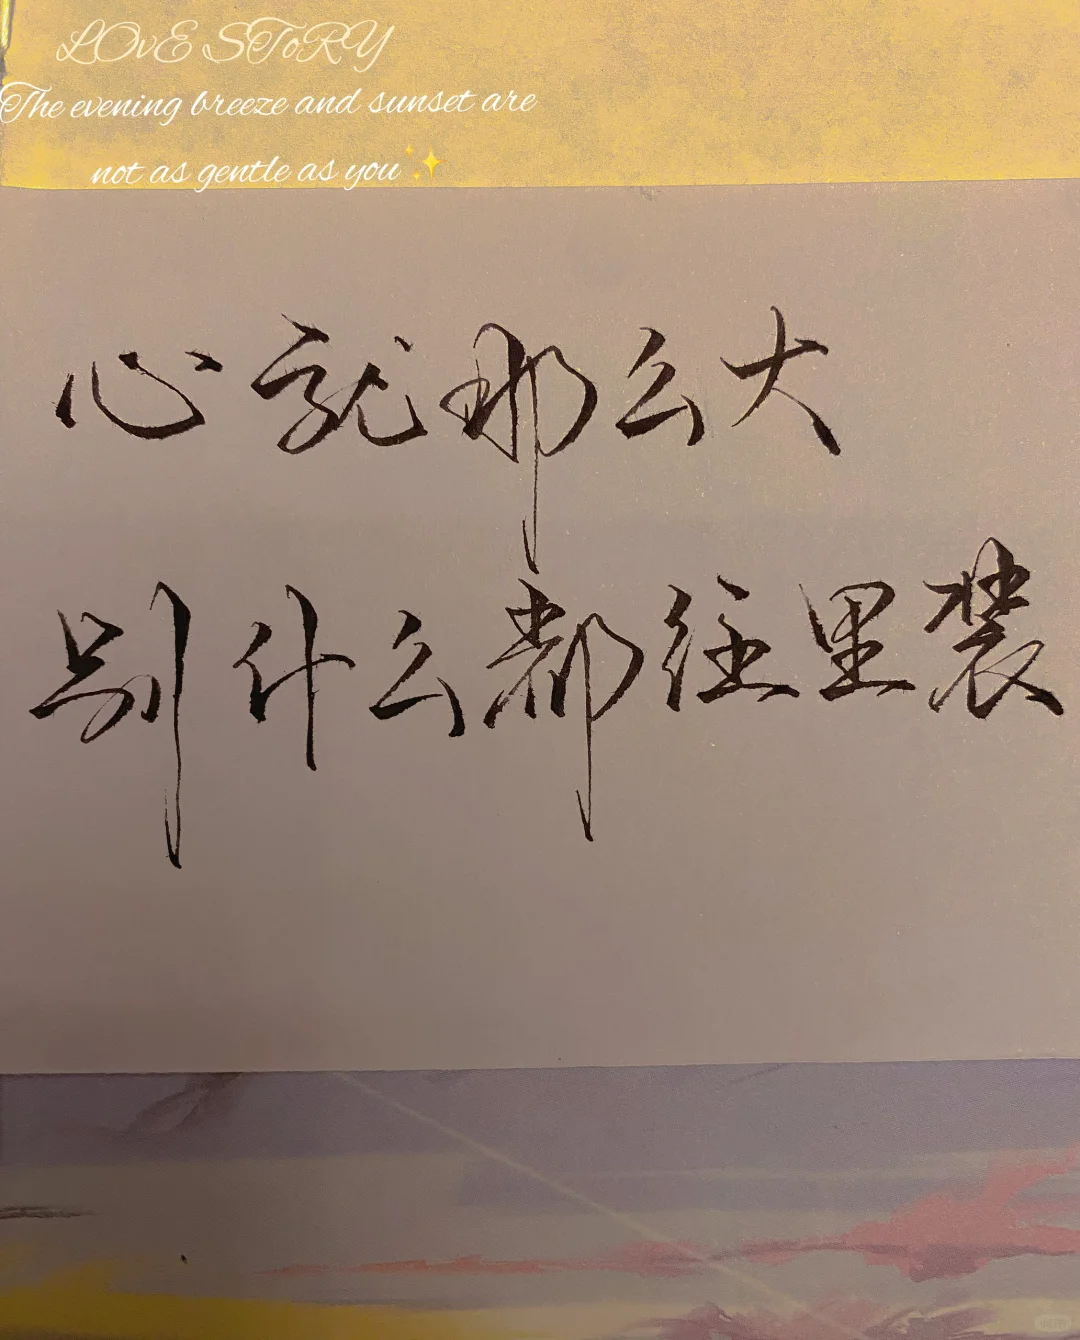 LOvE SToRY
The evening breeze and sunset are
not as gentle as you✨
心就那么大
别什么都往里装